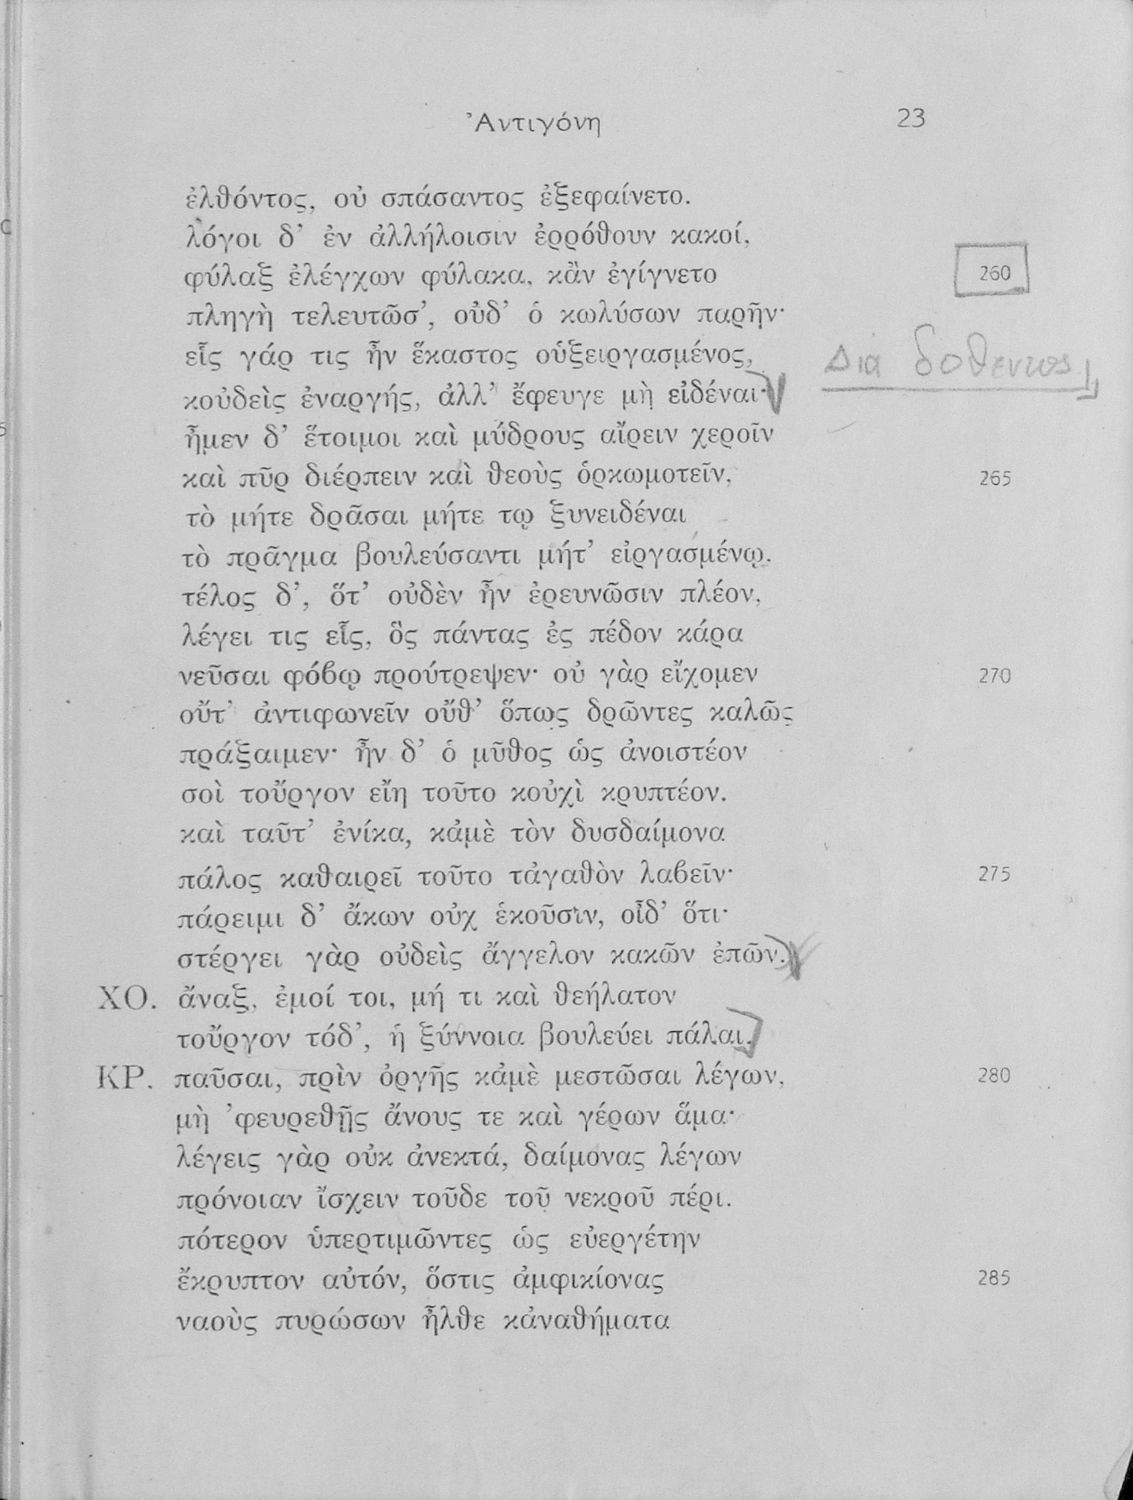 Ἀντιγόνη 23
ἐλθόντος, οὐ σπάσαντος ἐξεφαίνετο.
λόγοι δ' ἐν ἀλλήλοισιν ἐρρόθουν κακοί,
φύλαξ ἐλέγχων φύλακα, κἂν ἐγίγνετο 260
πληγὴ τελευτῶσ', οὐδ' ὁ κωλύσων παρῆν·
εἷς γάρ τις ἦν ἕκαστος οὑξειργασμένος, Διά δοθεντος
κοὐδεὶς ἐναργής, ἀλλ' ἔφευγε μὴ εἰδέναι·
ἦμεν δ' ἕτοιμοι καὶ μύδρους αἴρειν χεροῖν
καὶ πῦρ διέρπειν καὶ θεοὺς ὁρκωμοτεῖν, 265
τὸ μήτε δρᾶσαι μήτε τῳ ξυνειδέναι
τὸ πρᾶγμα βουλεύσαντι μήτ' εἰργασμένῳ.
τέλος δ', ὅτ' οὐδὲν ἦν ἐρευνῶσιν πλέον,
λέγει τις εἷς, ὃς πάντας ἐς πέδον κάρα
νεῦσαι φόβῳ προύτρεψεν· οὐ γὰρ εἴχομεν 270
οὔτ' ἀντιφωνεῖν οὔθ' ὅπως δρῶντες καλῶς
πράξαιμεν· ἦν δ' ὁ μῦθος ὡς ἀνοιστέον
σοὶ τοὔργον εἴη τοῦτο κοὐχὶ κρυπτέον.
καὶ ταῦτ' ἐνίκα, κἀμὲ τὸν δυσδαίμονα
πάλος καθαιρεῖ τοῦτο τἀγαθὸν λαβεῖν· 275
πάρειμι δ' ἄκων οὐχ ἑκοῦσιν, οἶδ' ὅτι·
στέργει γὰρ οὐδεὶς ἄγγελον κακῶν ἐπῶν.
ΧΟ. ἄναξ, ἐμοί τοι, μή τι καὶ θεήλατον
τοὔργον τόδ', ἡ ξύννοια βουλεύει πάλαι.
ΚΡ. παῦσαι, πρὶν ὀργῆς κἀμὲ μεστῶσαι λέγων, 280
μὴ 'φευρεθῇς ἄνους τε καὶ γέρων ἅμα·
λέγεις γὰρ οὐκ ἀνεκτά, δαίμονας λέγων
πρόνοιαν ἴσχειν τοῦδε τοῦ νεκροῦ πέρι.
πότερον ὑπερτιμῶντες ὡς εὐεργέτην
ἔκρυπτον αὐτόν, ὅστις ἀμφικίονας 285
ναοὺς πυρώσων ἦλθε κἀναθήματα